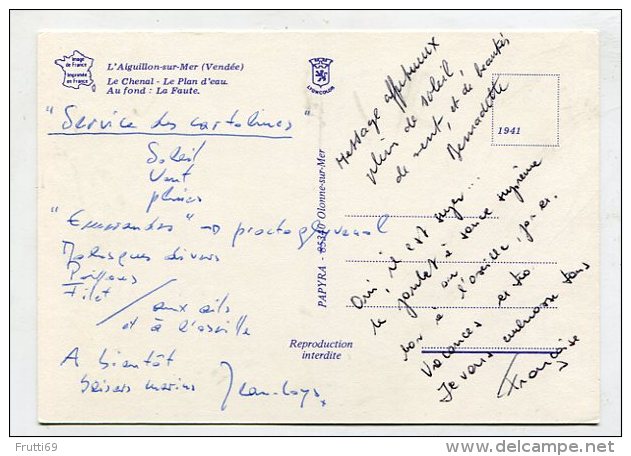 Image
de France
Imprimée
en France
L'Aiguillon-sur-Mer (Vendée)
Le Chenal - Le Plan d'eau.
Au fond : La Faute.
LYNX COLOR
1941
"Service des cartolines"
Soleil
Vent
pluies
" " →
Mollusques divers
Poissons
Filet / aux ails
et à l'oseille
A bientôt
baisers marins
Jean-Loys
PAPYRA - 85340 Olonne-sur-Mer
Reproduction
interdite
Message affectueux
plein de soleil,
de vent, et de beautés
Bernadette
Oui, il est super...
le poulet à sauce suprême
ou
bon à l'oseille,
Vacances extra
Je vous embrasse tous
Françoise
Frutti69
delcampe.net